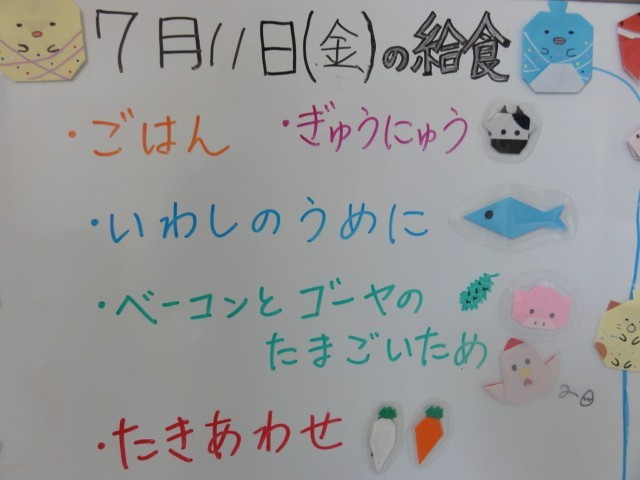 7月11日(金)の給食
・ごはん ・ぎゅうにゅう
・いわしのうめに
・ベーコンとゴーヤの
たまごいため
・たきあわせ